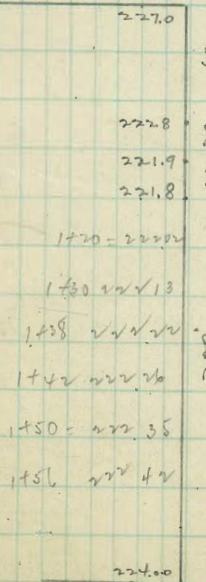 227.0
222.8
221.9
221.8
1+20 = 222.02
1+30 222.13
1+38 222.22
1+42 222.26
1+50 = 222.35
1+56 222.42
224.00